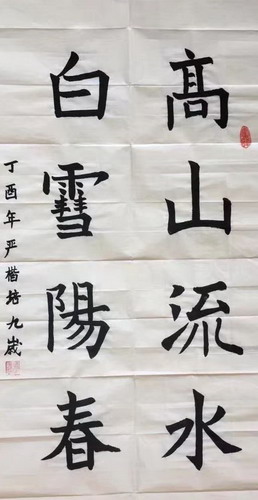 髙山流水
白雪陽春
丁酉年严楷培九歲